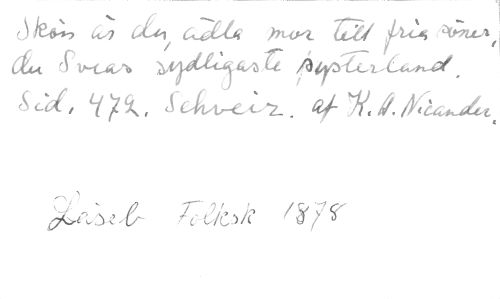 Skön är du, ädla mor till fria söner,
du Sveas sydligaste systerland.
Sid. 472. Schveiz. af K. A. Nicander.
Läseb Folksk 1878